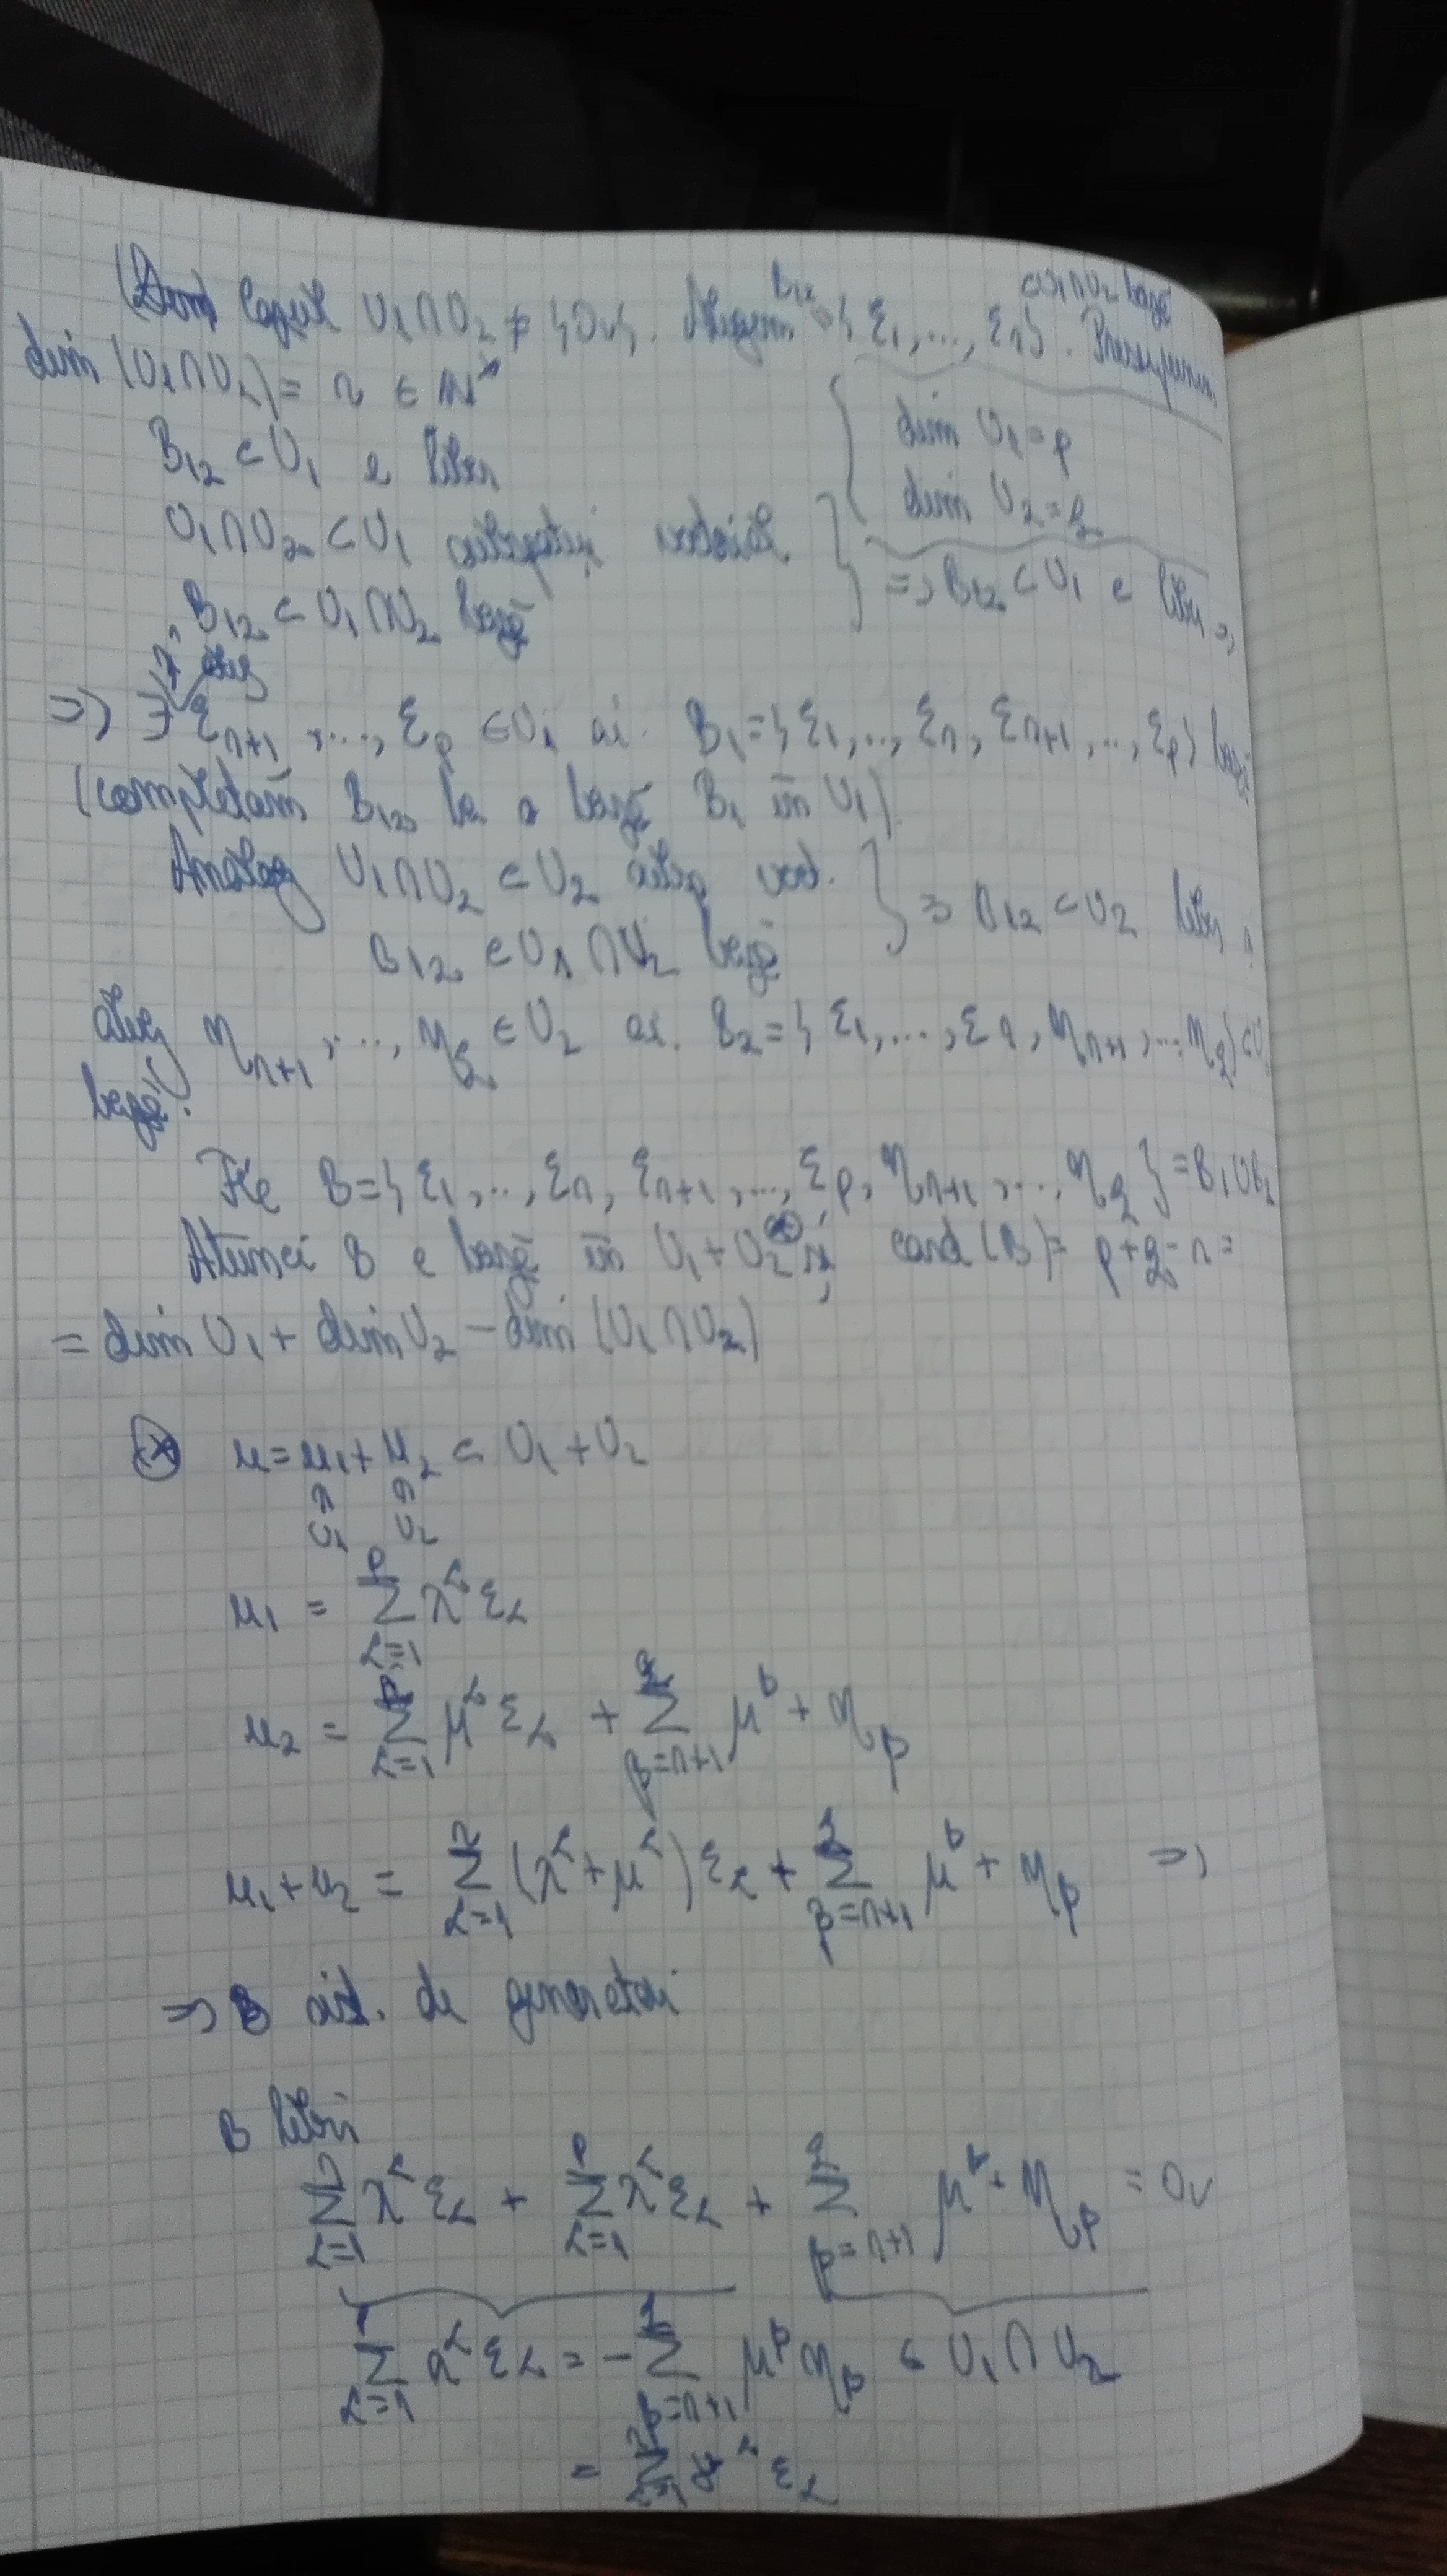 (Dem) Cazul U₁∩U₂ ≠ {0v}. Alegem B₁₂ = {ε₁,..., εn} ⊂ U₁∩U₂ bază. Presupunem
dim (U₁∩U₂) = n ∈ N*
{ dim U₁ = p
dim U₂ = q
B₁₂ ⊂ U₁ e liber
U₁∩U₂ ⊂ U₁ subspațiu vectorial
B₁₂ ⊂ U₁∩U₂ bază } => B₁₂ ⊂ U₁ e liber =>
aleg
=> ∃ εn+1 ,..., εp ∈ U₁ aî. B₁ = {ε₁,.., εn, εn+1,.., εp} bază
(completăm B₁₂ la o bază B₁ în U₁)
Analog U₁∩U₂ ⊂ U₂ sbsp vect.
B₁₂ ⊂ U₁∩U₂ bază } => B₁₂ ⊂ U₂ liber
aleg ηn+1,..., ηq ∈ U₂ aî. B₂ = {ε₁,..., εn, ηn+1,..., ηq} ⊂ U₂
bază.
Fie B = {ε₁,.., εn, εn+1,..., εp, ηn+1,..., ηq} = B₁∪B₂
Atunci B e bază în U₁+U₂ ⊛ și card (B) = p+q-n =
= dim U₁ + dim U₂ - dim (U₁∩U₂)
⊛ u = u₁ + u₂ ∈ U₁ + U₂
∩ ∩
U₁ U₂
u₁ = Σ_{α=1}^{p} λ^α ε_α
u₂ = Σ_{α=1} μ^α ε_α + Σ_{β=n+1}^{q} μ^β + η_β
u₁+u₂ = Σ_{α=1}^{n} (λ^α + μ^α) ε_α + Σ_{β=n+1}^{q} μ^β + η_β =>
=> B sist. de generatori
B liber
Σ_{α=1}^{n} λ^α ε_α + Σ_{α=1}^{p} λ^α ε_α + Σ_{β=n+1}^{q} μ^β · η_β = 0v
Σ_{α=1} λ^α ε_α = - Σ_{β=n+1}^{q} μ^β η_β ∈ U₁∩U₂
= Σ_{α=1} γ^α ε_α